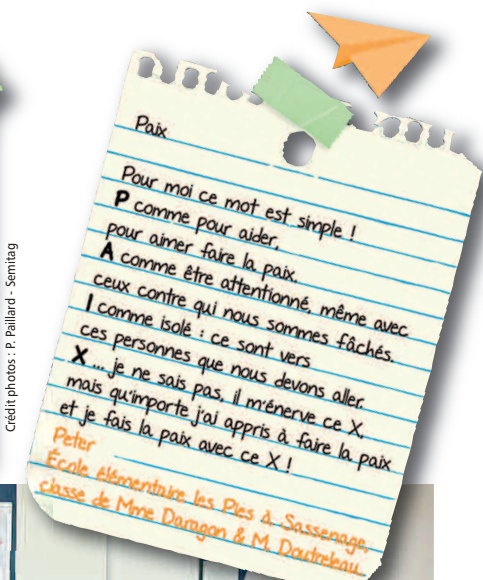 Paix
Pour moi ce mot est simple !
P comme pour aider,
pour aimer faire la paix.
A comme être attentionné, même avec
ceux contre qui nous sommes fâchés.
I comme isolé : ce sont vers
ces personnes que nous devons aller.
X ... je ne sais pas, il m'énerve ce X,
mais qu'importe j'ai appris à faire la paix
et je fais la paix avec ce X !
Peter
École élémentaire les Pies à Sassenage,
classe de Mme Daragon & M. Doutreleau
Crédit photos : P. Paillard - Semitag